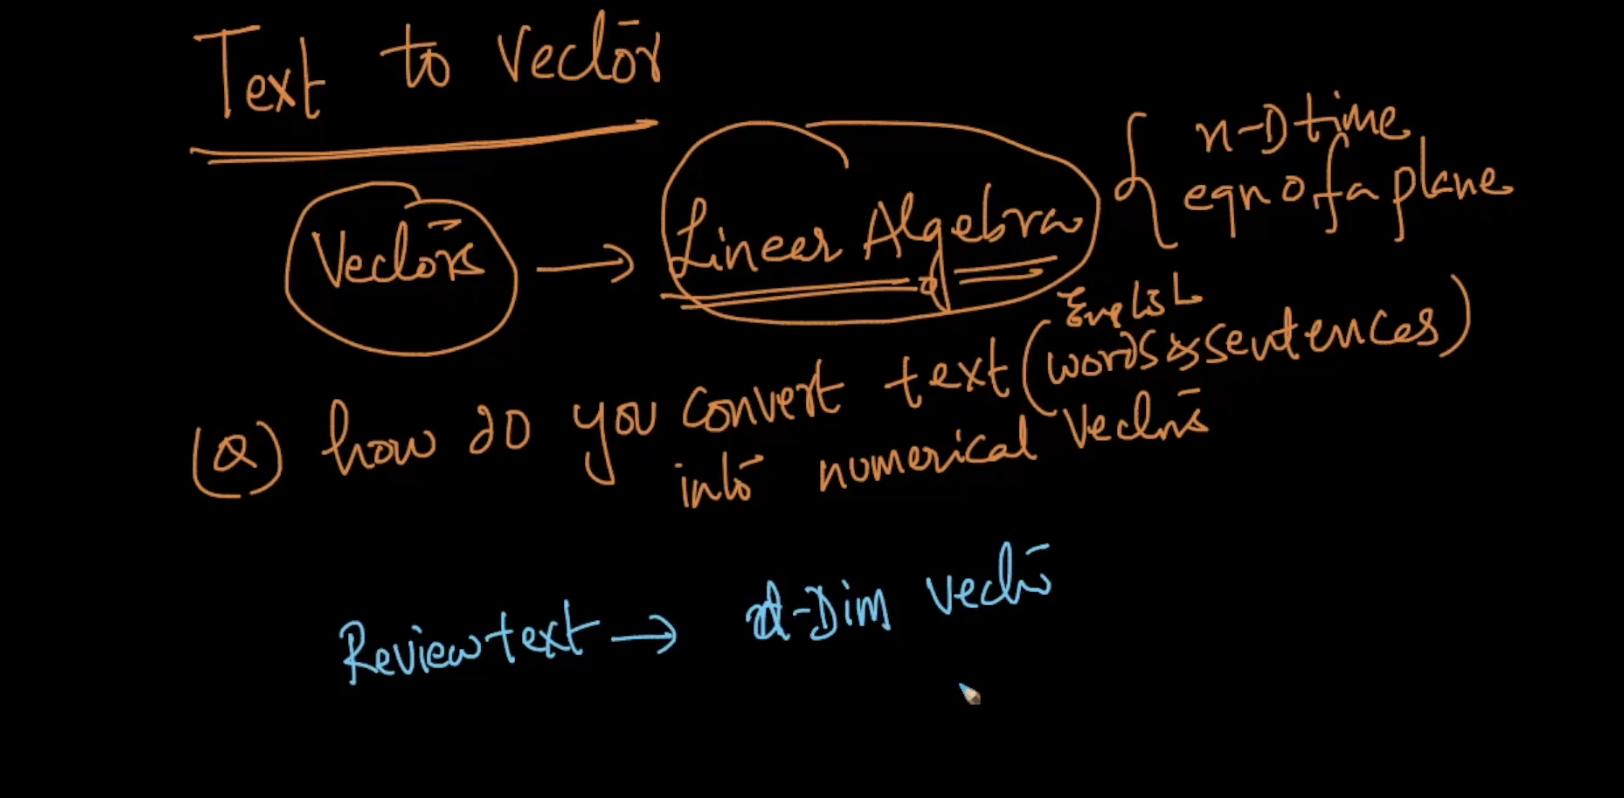 Text to vector
Vectors → Linear Algebra { n-D time
eqn of a plane
(Q) how do you convert text (English words & sentences)
into numerical vectors
Review text → d-Dim vector